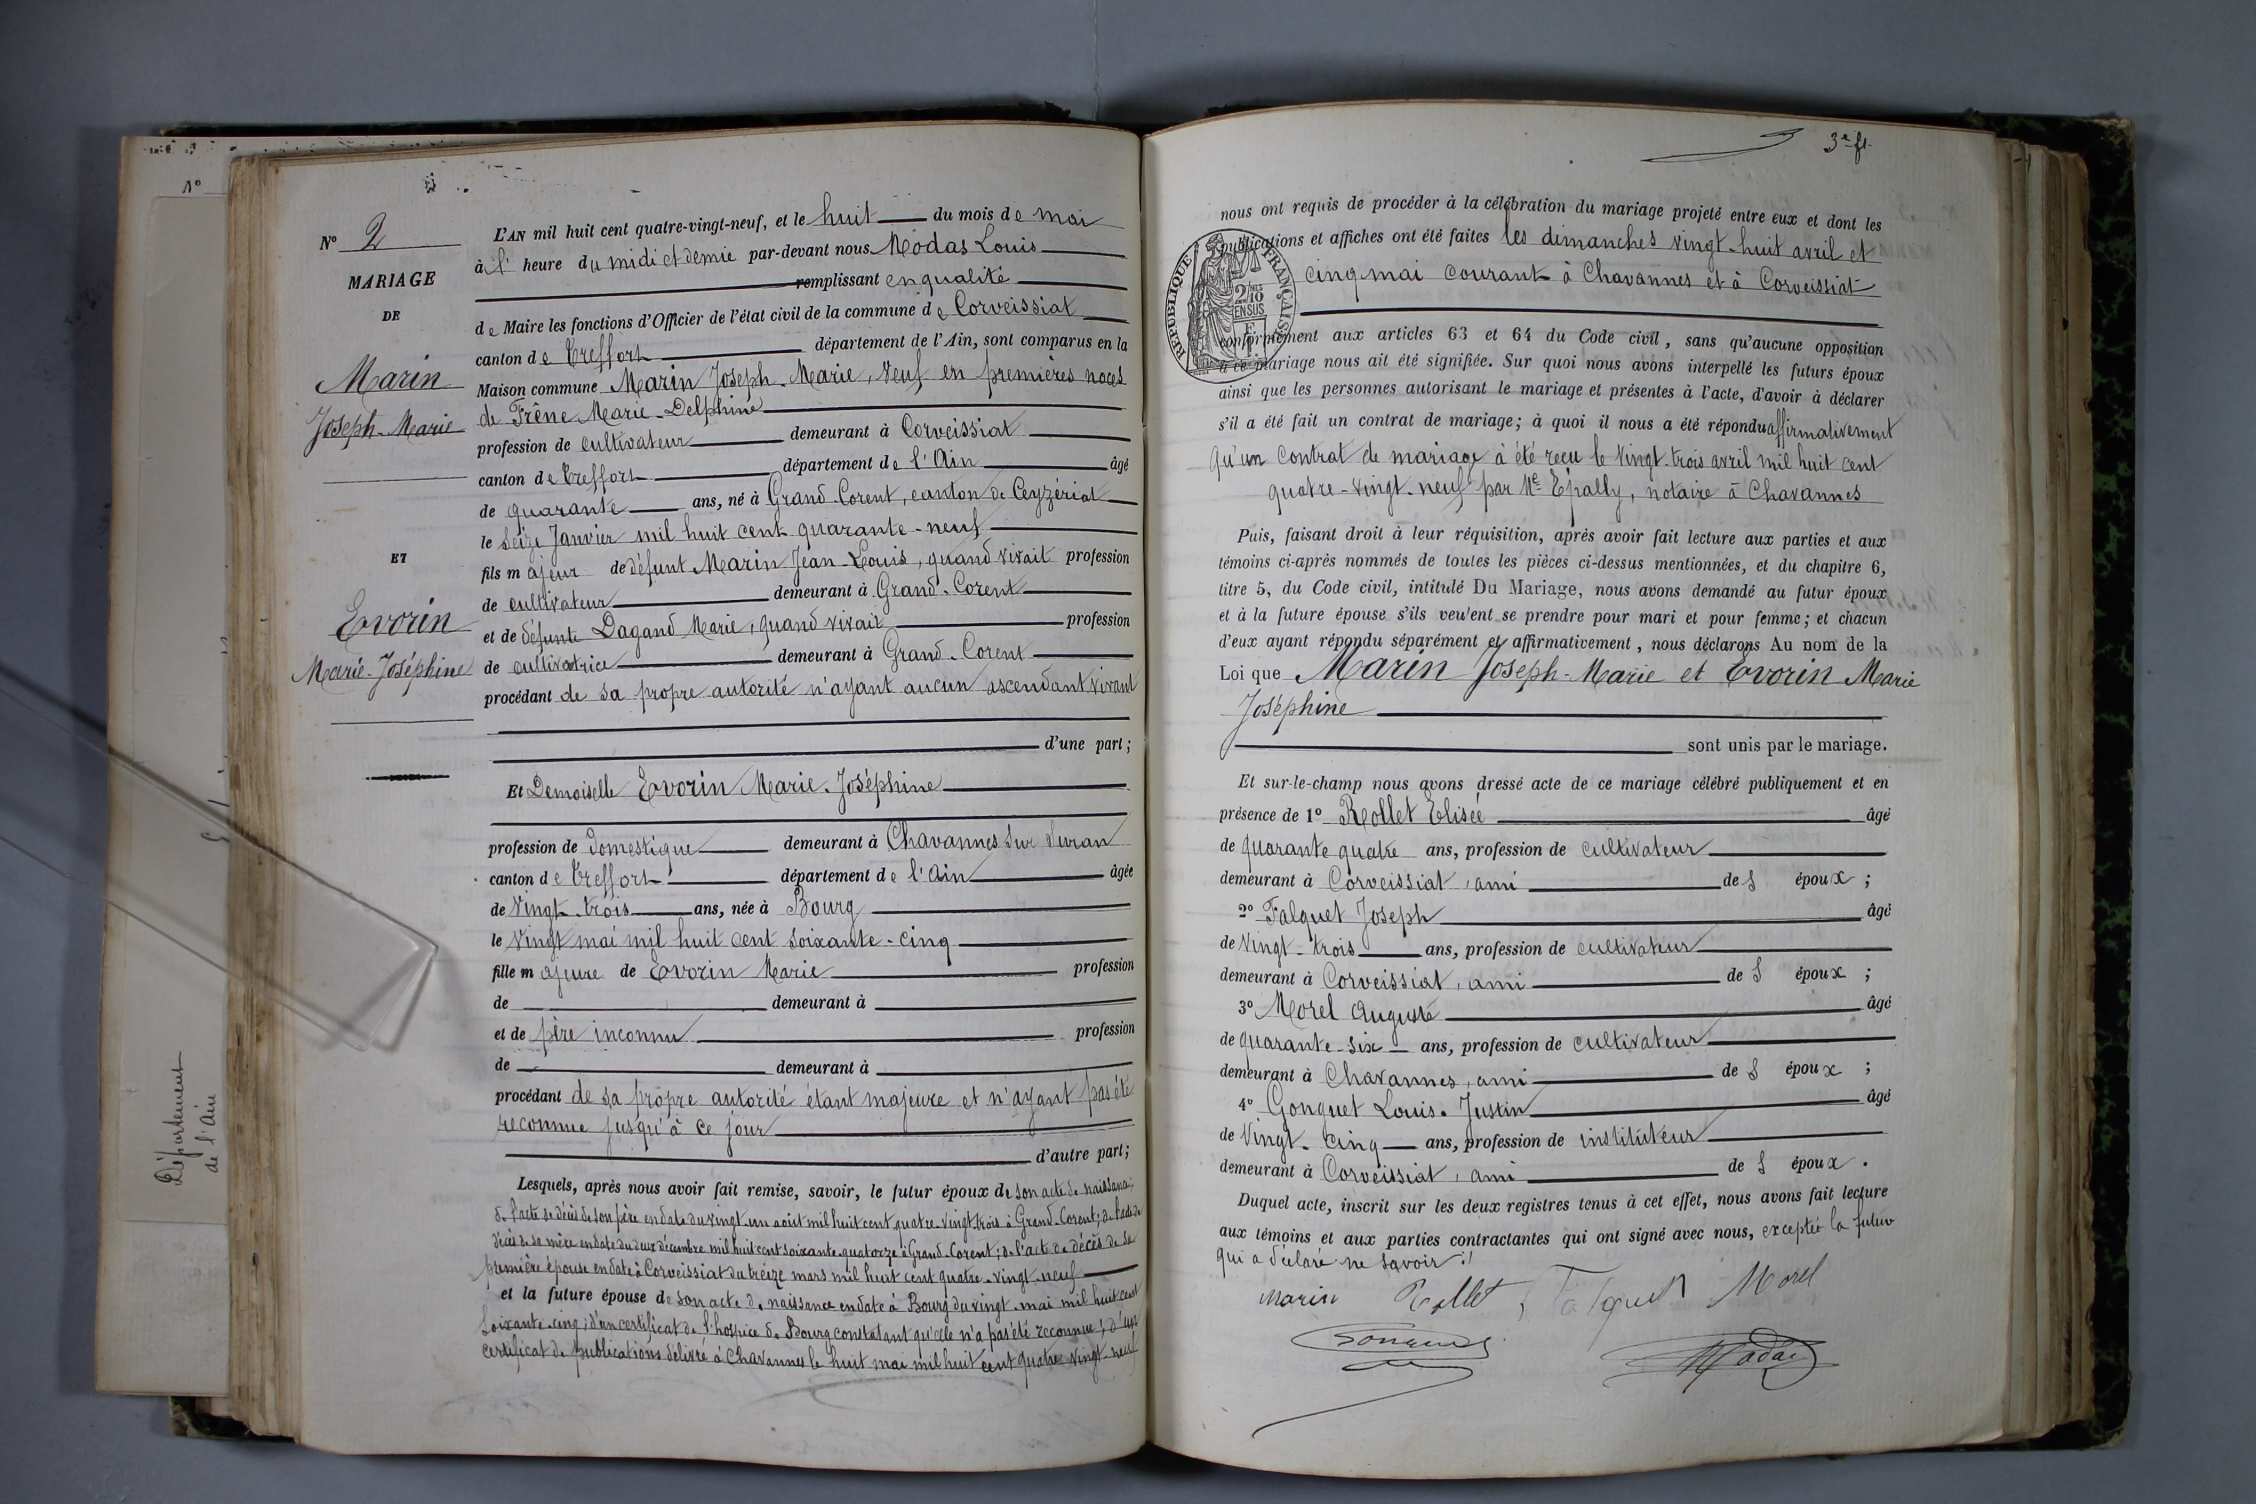 N° 2
MARIAGE
DE
Marin
Joseph-Marie
ET
Evorin
Marie-Joséphine
L'AN mil huit cent quatre-vingt-neuf, et le huit du mois de mai
à l' heure du midi et demie par-devant nous Modas Louis
remplissant en qualité
de Maire les fonctions d'Officier de l'état civil de la commune de Corveissiat
canton de Treffort département de l'Ain, sont comparus en la
Maison commune Marin Joseph-Marie, veuf en premières noces
de Frêne Marie-Delphine
profession de cultivateur demeurant à Corveissiat
canton de Treffort département de l'Ain âgé
de quarante ans, né à Grand-Corent, canton de Ceyzériat
le seize Janvier mil huit cent quarante-neuf
fils majeur de défunt Marin Jean-Louis, quand vivait profession
de cultivateur demeurant à Grand-Corent
et de défunte Dagand Marie, quand vivait profession
de cultivatrice demeurant à Grand-Corent
procédant de sa propre autorité n'ayant aucun ascendant vivant
d'une part;
Et Demoiselle Evorin Marie-Joséphine
profession de domestique demeurant à Chavannes sur Suran
canton de Treffort département de l'Ain âgée
de vingt-trois ans, née à Bourg
le vingt mai mil huit cent soixante-cinq
fille majeure de Evorin Marie profession
de demeurant à
et de père inconnu profession
de demeurant à
procédant de sa propre autorité étant majeure et n'ayant pas été
reconnue jusqu'à ce jour
d'autre part;
Lesquels, après nous avoir fait remise, savoir, le futur époux de son acte de naissance;
de l'acte de décès de son père en date du vingt-un août mil huit cent quatre-vingt-trois à Grand-Corent; de l'acte de
décès de sa mère en date du deux décembre mil huit cent soixante-quatorze à Grand-Corent; de l'acte de décès de sa
première épouse en date à Corveissiat du treize mars mil huit cent quatre-vingt-neuf
et la future épouse de son acte de naissance en date à Bourg du vingt mai mil huit cent
soixante-cinq; d'un certificat de l'hospice de Bourg constatant qu'elle n'a pas été reconnue; d'un
certificat de publications délivré à Chavannes le huit mai mil huit cent quatre-vingt-neuf
3e ft
nous ont requis de procéder à la célébration du mariage projeté entre eux et dont les
publications et affiches ont été faites les dimanches vingt-huit avril et
cinq mai courant à Chavannes et à Corveissiat
RÉPUBLIQUE FRANÇAISE
2/10
EN SUS
conformément aux articles 63 et 64 du Code civil, sans qu'aucune opposition
à ce mariage nous ait été signifiée. Sur quoi nous avons interpellé les futurs époux
ainsi que les personnes autorisant le mariage et présentes à l'acte, d'avoir à déclarer
s'il a été fait un contrat de mariage; à quoi il nous a été répondu affirmativement
qu'un contrat de mariage à été reçu le vingt-trois avril mil huit cent
quatre-vingt-neuf par Me Épally, notaire à Chavannes
Puis, faisant droit à leur réquisition, après avoir fait lecture aux parties et aux
témoins ci-après nommés de toutes les pièces ci-dessus mentionnées, et du chapitre 6,
titre 5, du Code civil, intitulé Du Mariage, nous avons demandé au futur époux
et à la future épouse s'ils veulent se prendre pour mari et pour femme; et chacun
d'eux ayant répondu séparément et affirmativement, nous déclarons Au nom de la
Loi que Marin Joseph-Marie et Evorin Marie
Joséphine
sont unis par le mariage.
Et sur-le-champ nous avons dressé acte de ce mariage célébré publiquement et en
présence de 1° Rollet Elisée âgé
de quarante quatre ans, profession de cultivateur
demeurant à Corveissiat, ami des époux;
2° Falquet Joseph âgé
de vingt-trois ans, profession de cultivateur
demeurant à Corveissiat, ami des époux;
3° Morel Auguste âgé
de quarante-six ans, profession de cultivateur
demeurant à Chavannes, ami des époux;
4° Gonguet Louis-Justin âgé
de vingt-cinq ans, profession de instituteur
demeurant à Corveissiat, ami des époux.
Duquel acte, inscrit sur les deux registres tenus à cet effet, nous avons fait lecture
aux témoins et aux parties contractantes qui ont signé avec nous, exceptée la future
qui a déclaré ne savoir
Marin Rollet Falquet Morel
Modas
N°
Département
de l'Ain